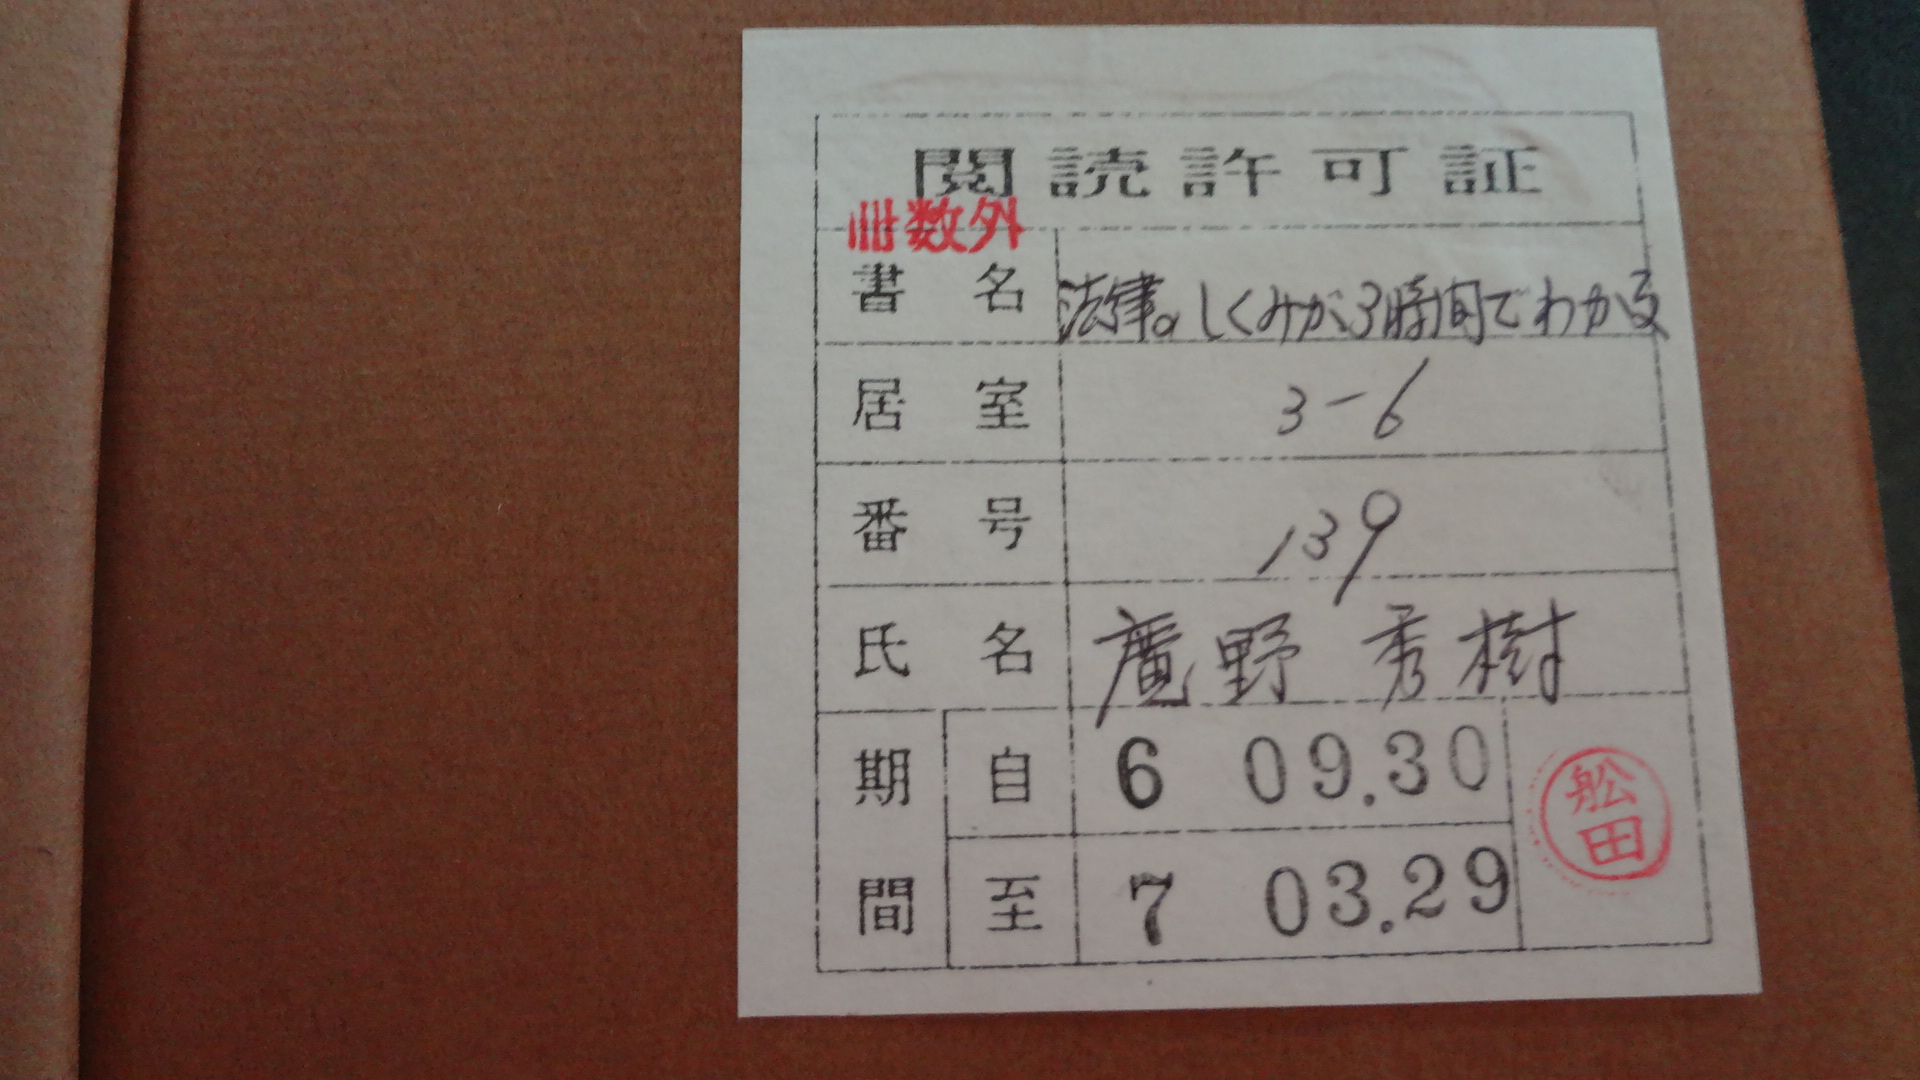 閲読許可証
冊数外
書名 法律のしくみが3時間でわかる
居室 3-6
番号 139
氏名 廣野 秀樹
期間 自 6 09.30
至 7 03.29
舩田